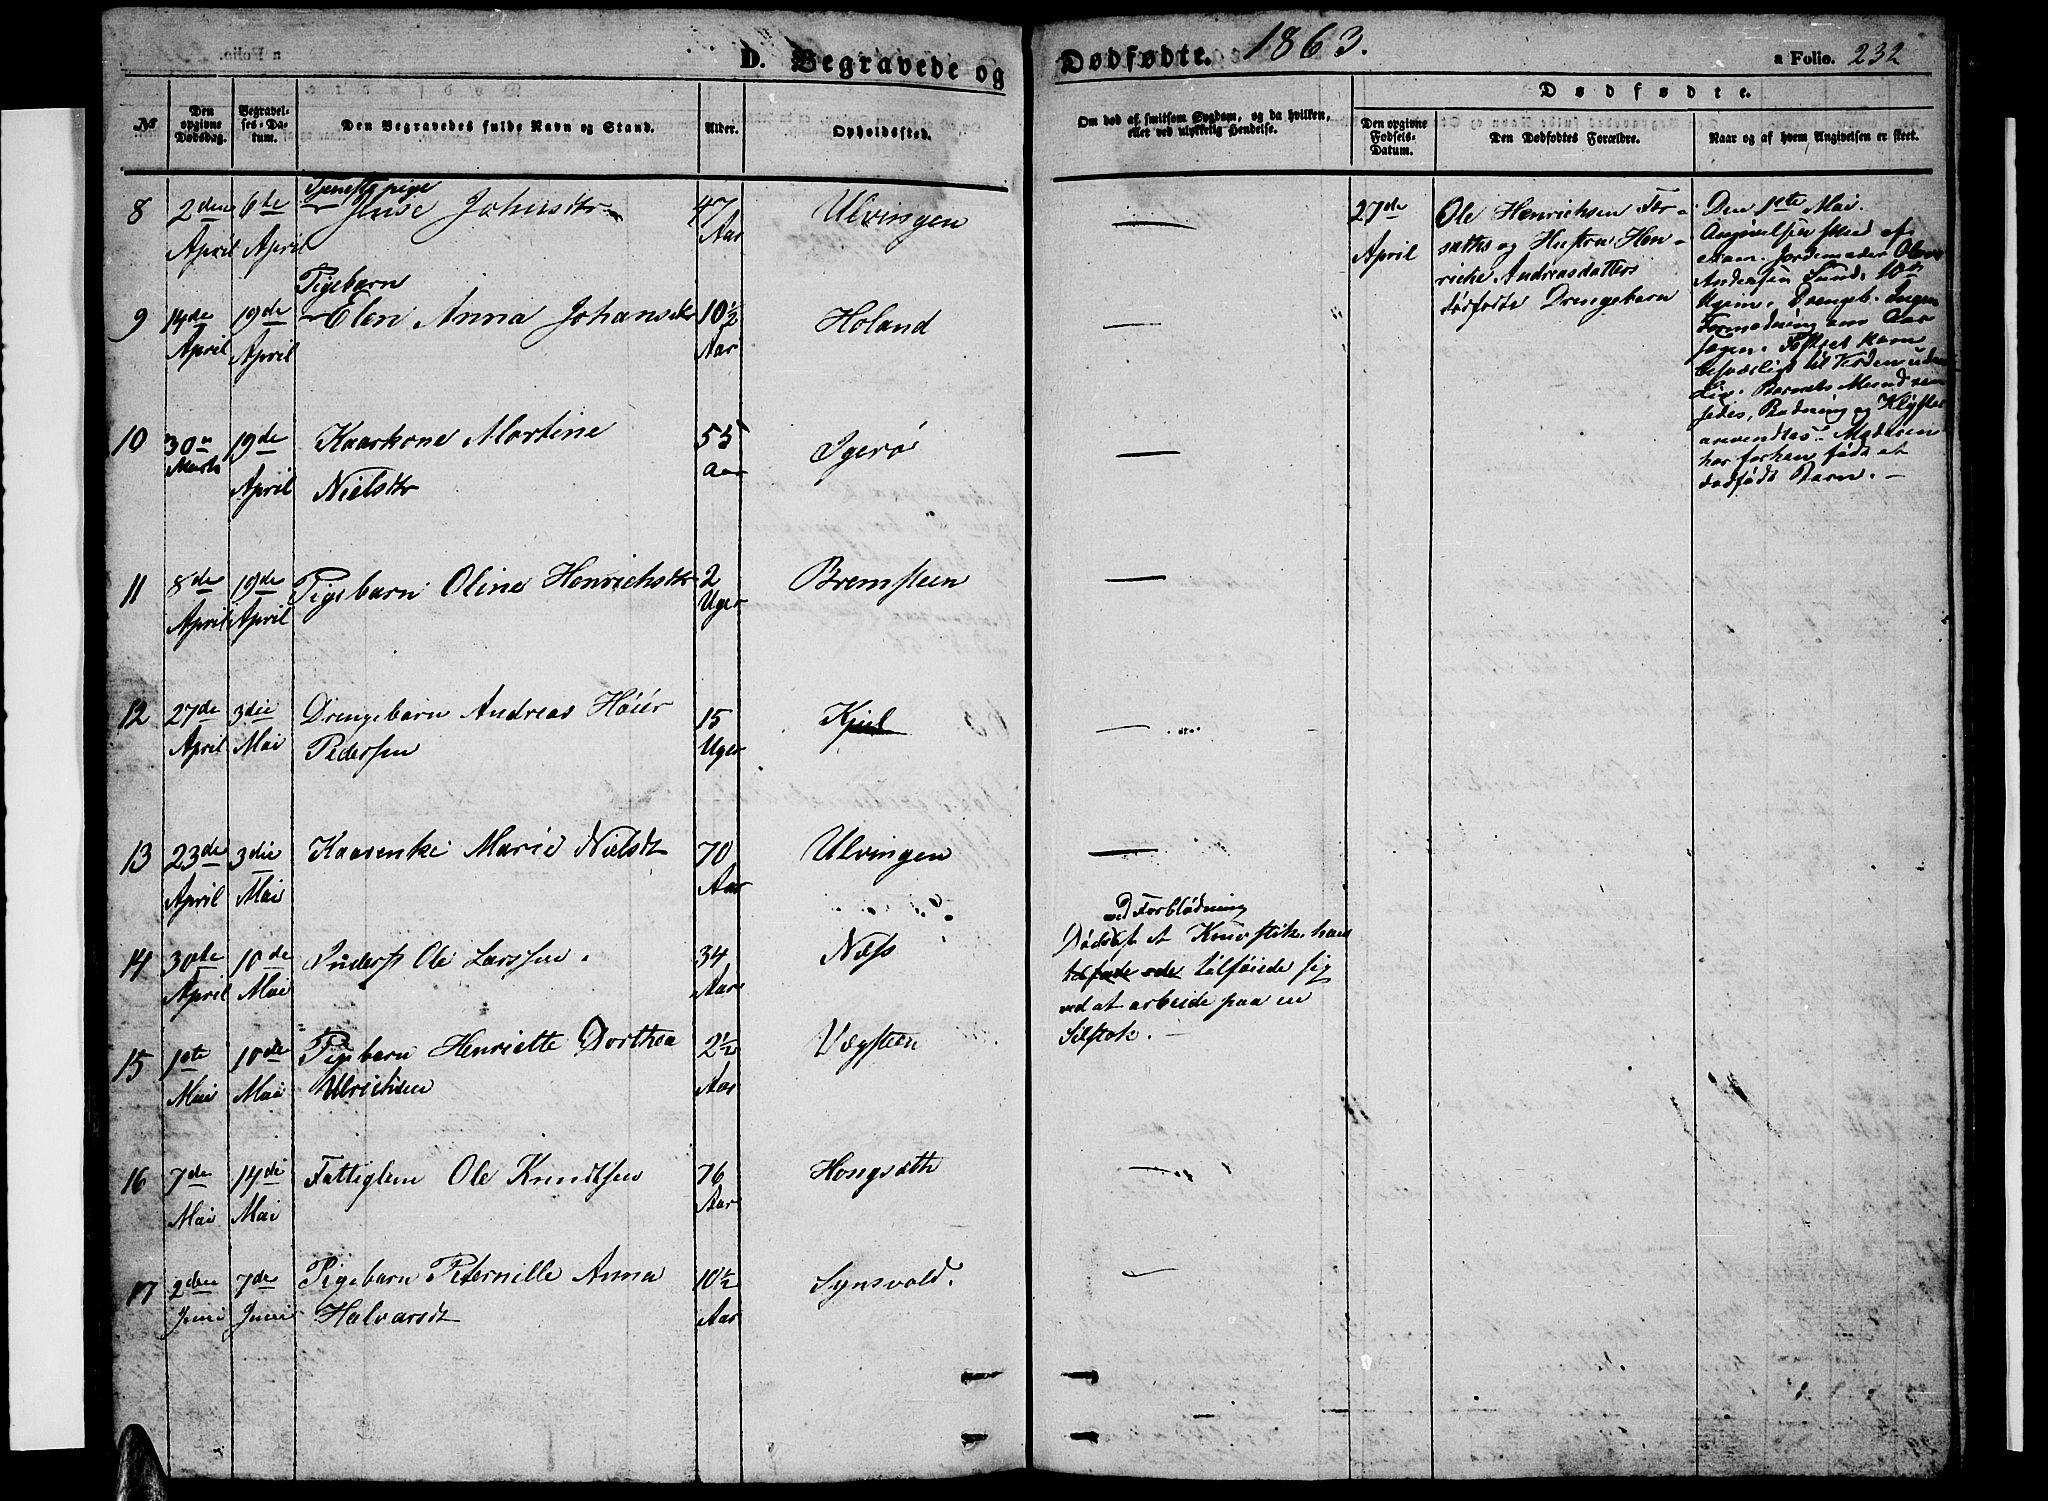 D. Begravede og Dødfødte. 1863. a Folio. 232
№
Den opgivne Dødsdag.
Begravelses-Datum.
Den Begravedes fulde Navn og Stand.
Alder.
Opholdssted.
Om død af smitsom Sygdom, og da hvilken, eller ved ulykkelig Hendelse.
Dødfødte.
Den opgivne Fødsels-Datum.
Den Dødfødtes Forældre.
Naar og af hvem Angivelsen er skeet.
8 2den April 6te April Tjenestepige Johnsdtr 47 Aar Ulvingen —
9 14de April 19de April Pigebarn
Elen Anna Johansdtr 10½ Aar Holand —
10 30te Marts 19de April Kaarkone Martine
Nielsdtr 55 Aar Igerø —
11 8de April 19de April Pigebarn Oline Henrichsdtr 2 Uger Bremsteen —
12 27de April 3die Mai Drengebarn Andreas Høier
Pederssen 15 Uger Kjul —
13 23de April 3die Mai Kaarenke Marie Nielsdtr 70 Aar Ulvingen —
14 30te April 10de Mai Inderst Ole Larssen. 34 Aar Næss
ved Forblødning
Døde af et Knivstik, han
tilføiede sig
ved at arbeide paa en
Silstok. —
15 1ste Mai 10de Mai Pigebarn Henriette Dorthea
Ulrichsen 2½ Aar Vægsteen
16 7de Mai 14de Mai Fattiglem Ole Knudtsen 76 Aar Hongsæth —
17 2den Juni 7de Juni Pigebarn Peternille Anna
Halvorsdt 10½ Aar Synsvold. —
27de April
Ole Henrichsen For-
sæths og Hustru Hen-
rikke Andreasdatters
dødfødte Drengebarn
Den 1ste Mai.
Angivelsen skeed af
exam. Jordemoder Olava
Andersen Sund. 10n
Svm. Drengeb. Ingen
Formodning om Aar
sagen. Fostret kom
besværligt til Verden uden
Liv. Barnets Mund ren
sedes, Badning og Klyster
anvendtes. Moderen
har forhen født et
dødfødt Barn. —